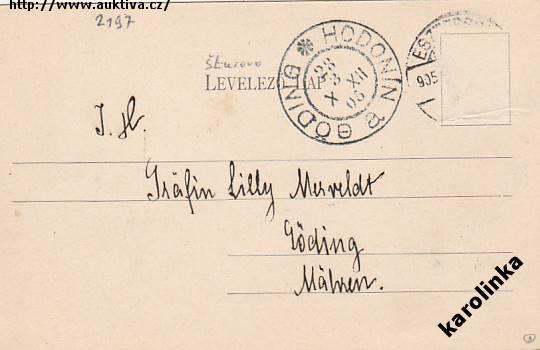 http://www.auktiva.cz/
2197
Šturovo
LEVELEZŐ-LAP
HODONÍN
GÖDING
28 XII 05
905
I. H.
Gräfin Lilly Merveldt
Göding
Mähren.
karolinka